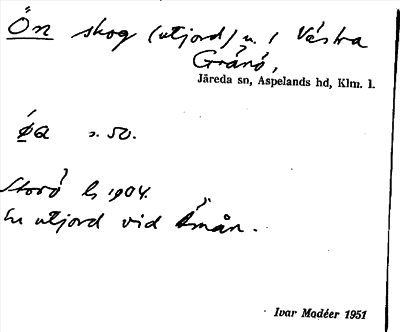 Ön skog (utjord) u. / Västra
Gränö,
Järeda sn, Aspelands hd, Klm. l.
øa s. 50.
Storö 1904.
En utjord vid Emån.
Ivar Modéer 1951